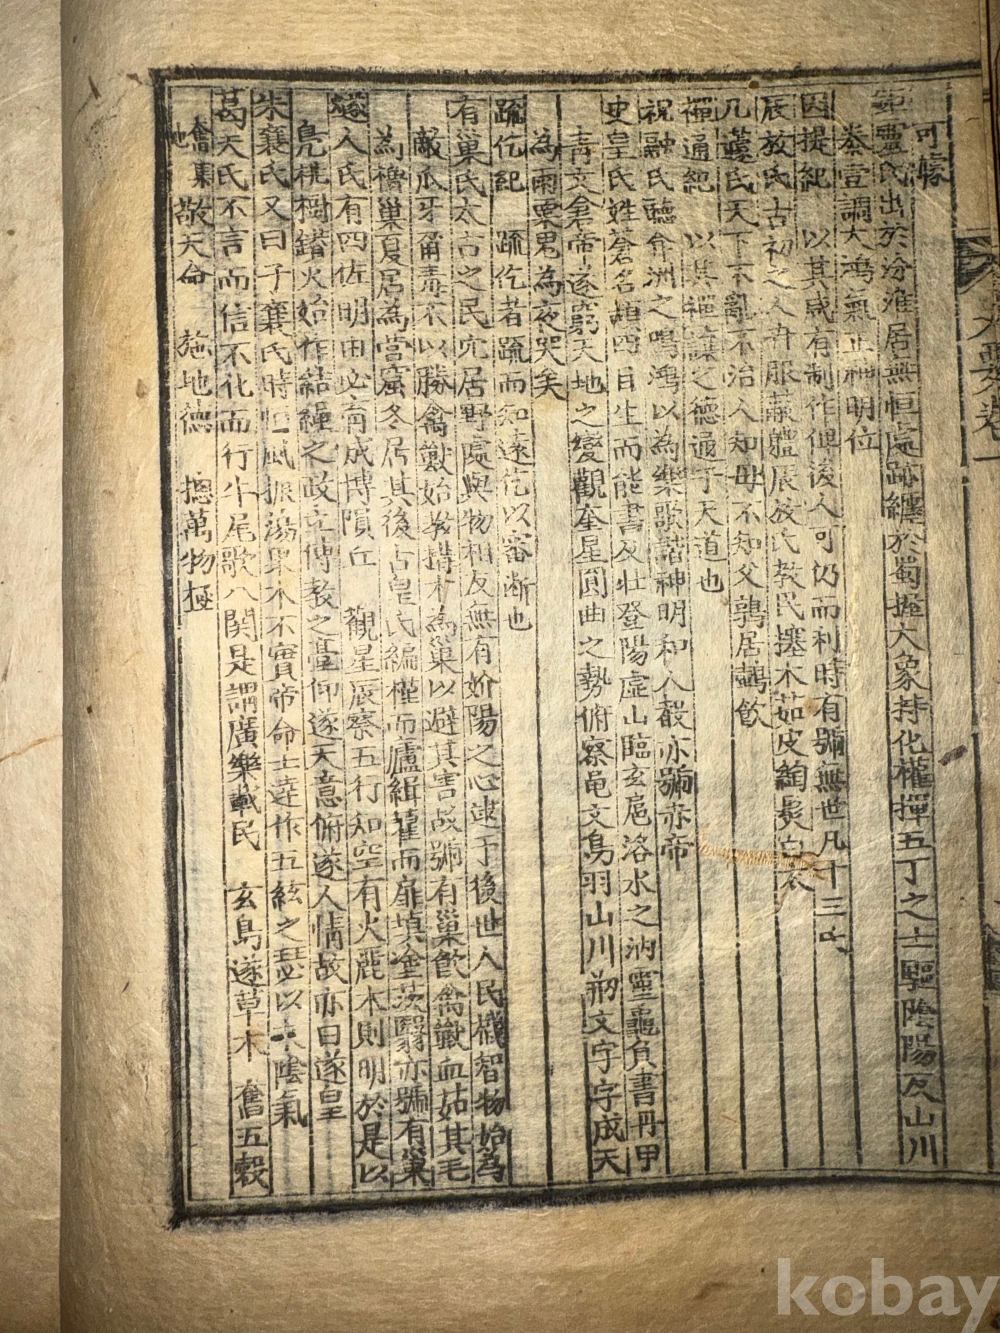 可據
鉅靈氏出於汾淮居無恒處跡纏於蜀握大象持化權揮五丁之士驅陰陽反山川
泰壹調大鴻氣正神明位
因提紀 以其咸有制作俾後人可仍而利時有號無世凡十三氏
辰放氏古初之人卉服蔽體辰放氏教民搴木茹皮綯髮
几蘧氏天下不亂不治人知母不知父鶉居鷇飲
禪通紀 以其禪讓之德通于天道也
祝融氏聽弇洲之鳴鴻以為樂歌諧神明和人聲亦號赤帝
史皇氏姓蒼名頡四目生而能書及壯登陽虛山臨玄扈洛水之汭靈龜負書丹甲
青文拿帝遂窮天地之變觀奎星圓曲之勢俯察黽文鳥羽山川 文字字成天
為雨粟鬼為夜哭矣
疏仡紀 疏仡者疏而知遠仡以審斷也
有巢氏太古之民穴居野處與物相友無有妎陽之心逮于後世人民機智物始為
敵爪牙角毒不以勝禽獸始教搆木為巢以避其害故號有巢飲禽獸血茹其毛
為櫓巢夏居為當窟冬居其後古皇氏編槿而廬緝藋而扉塡塗茨翳亦號有巢
燧人氏有四佐明由必育成博隕丘 觀星辰察五行知空有火麗木則明於是以
鳧棁樹鐟火始作結繩之政立傳教之臺仰遂天意俯遂人情故亦曰遂皇
朱襄氏又曰子襄氏時 風振蕩果木不實帝命士達作五絃之瑟以 陰氣
葛天氏不言而信不化而行牛尾歌八闋是謂廣樂載民 玄鳥遂草木 奮五穀
敬天命 施地德 摠萬物極
卷一
kobay